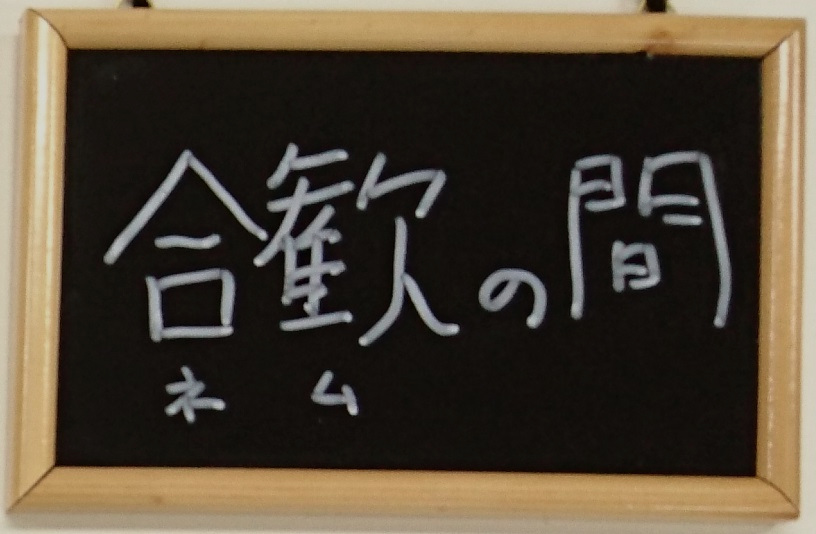 合歓の間
ネム